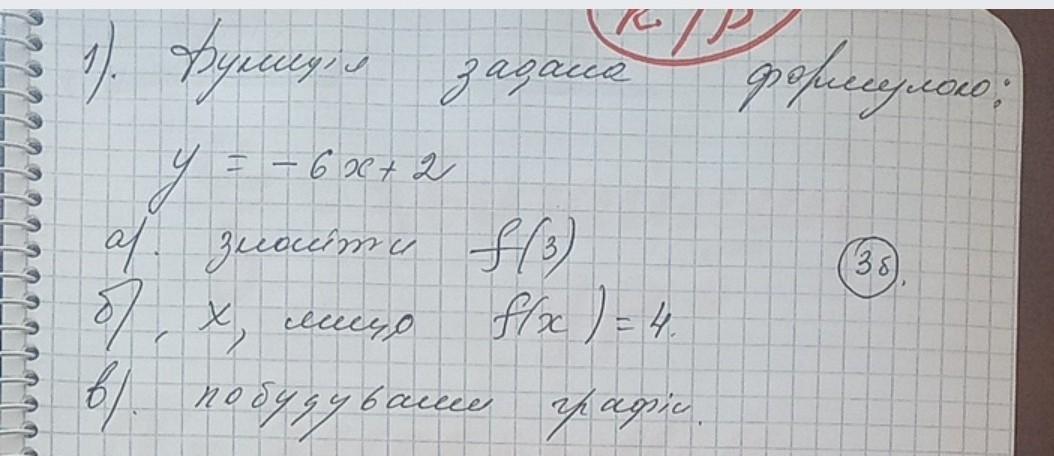 к/р
1). Функція задана формулою:
y = -6x+2
а). знайти f(3)
3б.
б), x, якщо f(x) = 4.
в). побудувати графік.